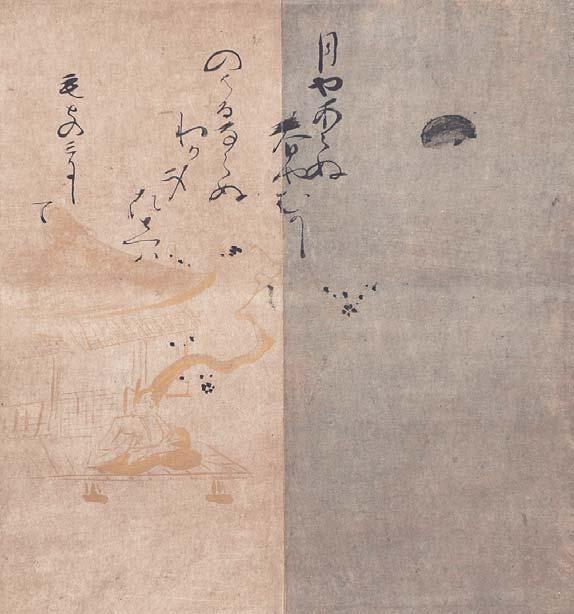 月やあらぬ
春やむかし
のはるならぬ
わか身
ひとつは
もとのみにし
て